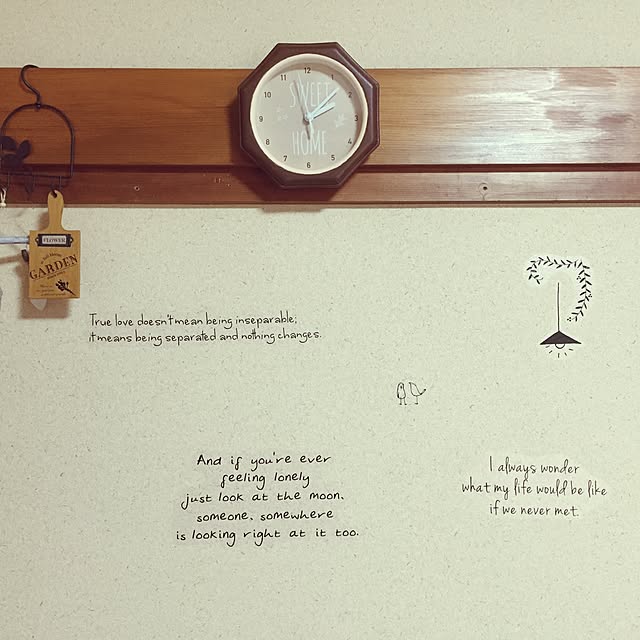 12
1
2
3
4
5
6
7
8
9
10
11
SWEET
HOME
FLOWER
GARDEN
True love doesn't mean being inseparable;
it means being separated and nothing changes.
And if you're ever
feeling lonely
just look at the moon.
someone, somewhere
is looking right at it too.
I always wonder
what my life would be like
if we never met.